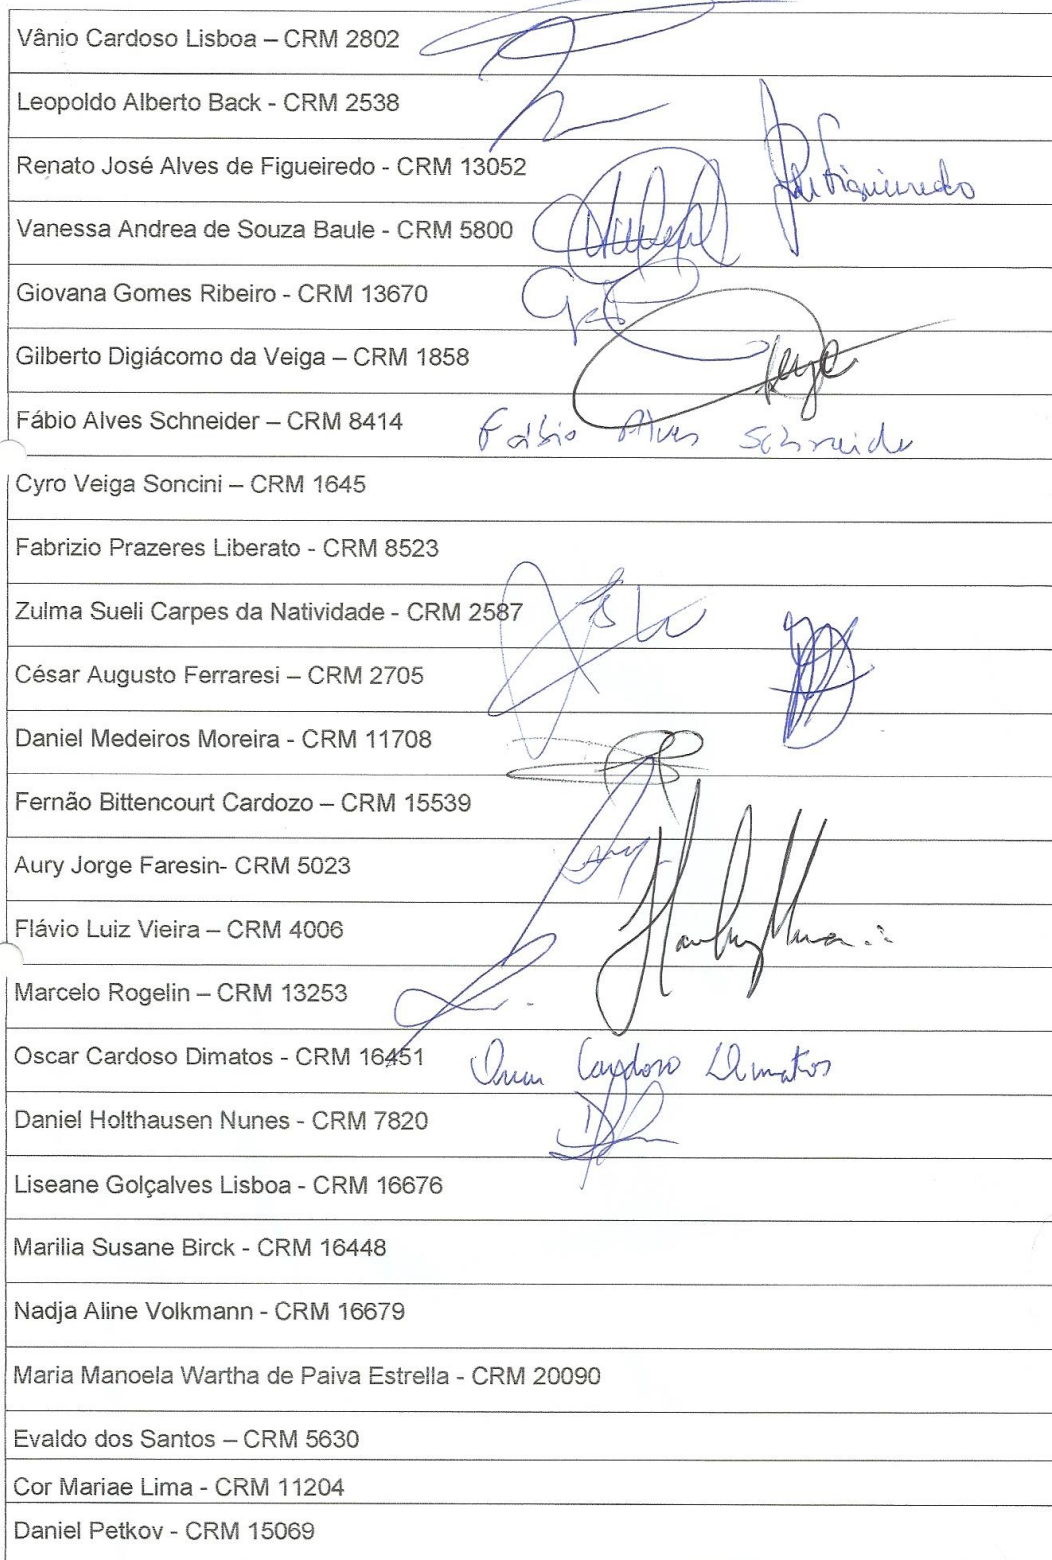 Vânio Cardoso Lisboa – CRM 2802
Leopoldo Alberto Back - CRM 2538
Renato José Alves de Figueiredo - CRM 13052
Figueiredo
Vanessa Andrea de Souza Baule - CRM 5800
Giovana Gomes Ribeiro - CRM 13670
Gilberto Digiácomo da Veiga – CRM 1858
Fábio Alves Schneider – CRM 8414 Fábio Alves Schneider
Cyro Veiga Soncini – CRM 1645
Fabrizio Prazeres Liberato - CRM 8523
Zulma Sueli Carpes da Natividade - CRM 2587
César Augusto Ferraresi – CRM 2705
Daniel Medeiros Moreira - CRM 11708
Fernão Bittencourt Cardozo – CRM 15539
Aury Jorge Faresin- CRM 5023
Flávio Luiz Vieira – CRM 4006
Marcelo Rogelin – CRM 13253
Oscar Cardoso Dimatos - CRM 16451 Oscar Cardoso Dimatos
Daniel Holthausen Nunes - CRM 7820
Liseane Golçalves Lisboa - CRM 16676
Marilia Susane Birck - CRM 16448
Nadja Aline Volkmann - CRM 16679
Maria Manoela Wartha de Paiva Estrella - CRM 20090
Evaldo dos Santos – CRM 5630
Cor Mariae Lima - CRM 11204
Daniel Petkov - CRM 15069